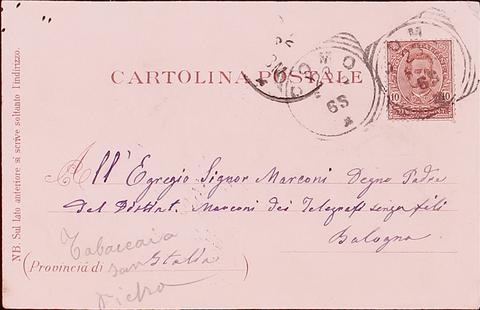 CARTOLINA POSTALE
COMO
COMO
10 10
NB. Sul lato anteriore si scrive soltanto l'indirizzo.
All'Egregio Signor Marconi Degno Padre
del Distint. Marconi dei Telegrafi senza fili
Bologna
(Provincia di Italia)
Tabaccaia
San
Pietro